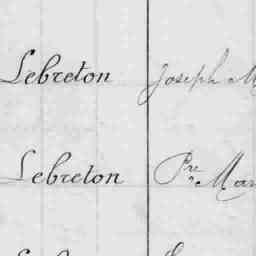 Lebreton Joseph M
Lebreton Pre Mar